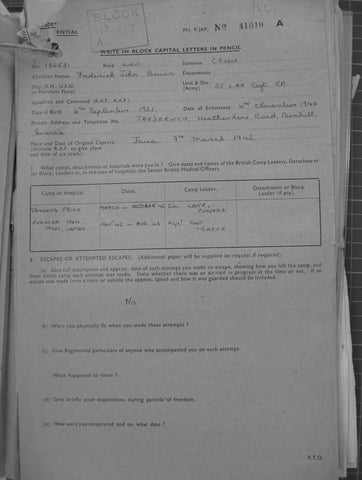 NL.
BLOCK
ENTIAL
M.I. 9/Jap/ No 41010 A
WRITE IN BLOCK CAPITAL LETTERS IN PENCIL
No. Rank Surname CROSSE
Christian Names Frederick John Decorations
Ship (R.N., U.S.N. or Merchant Navy) Unit & Div. (Army) R.A.
Squadron and Command (R.A.F., A.A.F.)
Date of Birth 6th September 1921. Date of Enlistment 6th November 1940
Private Address and Telephone No. Heatherdene Road,
Place and Date of Original Capture Java 9th March 1942.
(Aircrew R.A.F. to give place and date of air crash)
1. What camps, detachments or hospitals were you in? Give dates and names of the British Camp Leaders, Detachment or (in block) Leaders or, in the case of hospitals, the Senior British Medical Officers.
Camp or Hospital. Dates. Camp Leader. Detachment or Block Leader (if any).
TANJONG PRIOK MARCH - OCTOBER 42 LANE,
JAPAN NOV 42 - AUG 45
2. ESCAPES OR ATTEMPTED ESCAPES. (Additional paper will be supplied on request if required).
(a) Give full description and approx. date of each attempt you made to escape, showing how you left the camp, and from which camp each attempt was made. State whether there was an air-raid in progress at the time or not. If an escape was made from a train or vehicle the approx. speed and how it was guarded should be included.
No.
(b) Were you physically fit when you made these attempts?
(c) Give Regimental particulars of anyone who accompanied you on each attempt.
What happened to them?
(d) Give briefly your experiences during periods of freedom.
(e) How were you recaptured and on what date?
P.T.O.